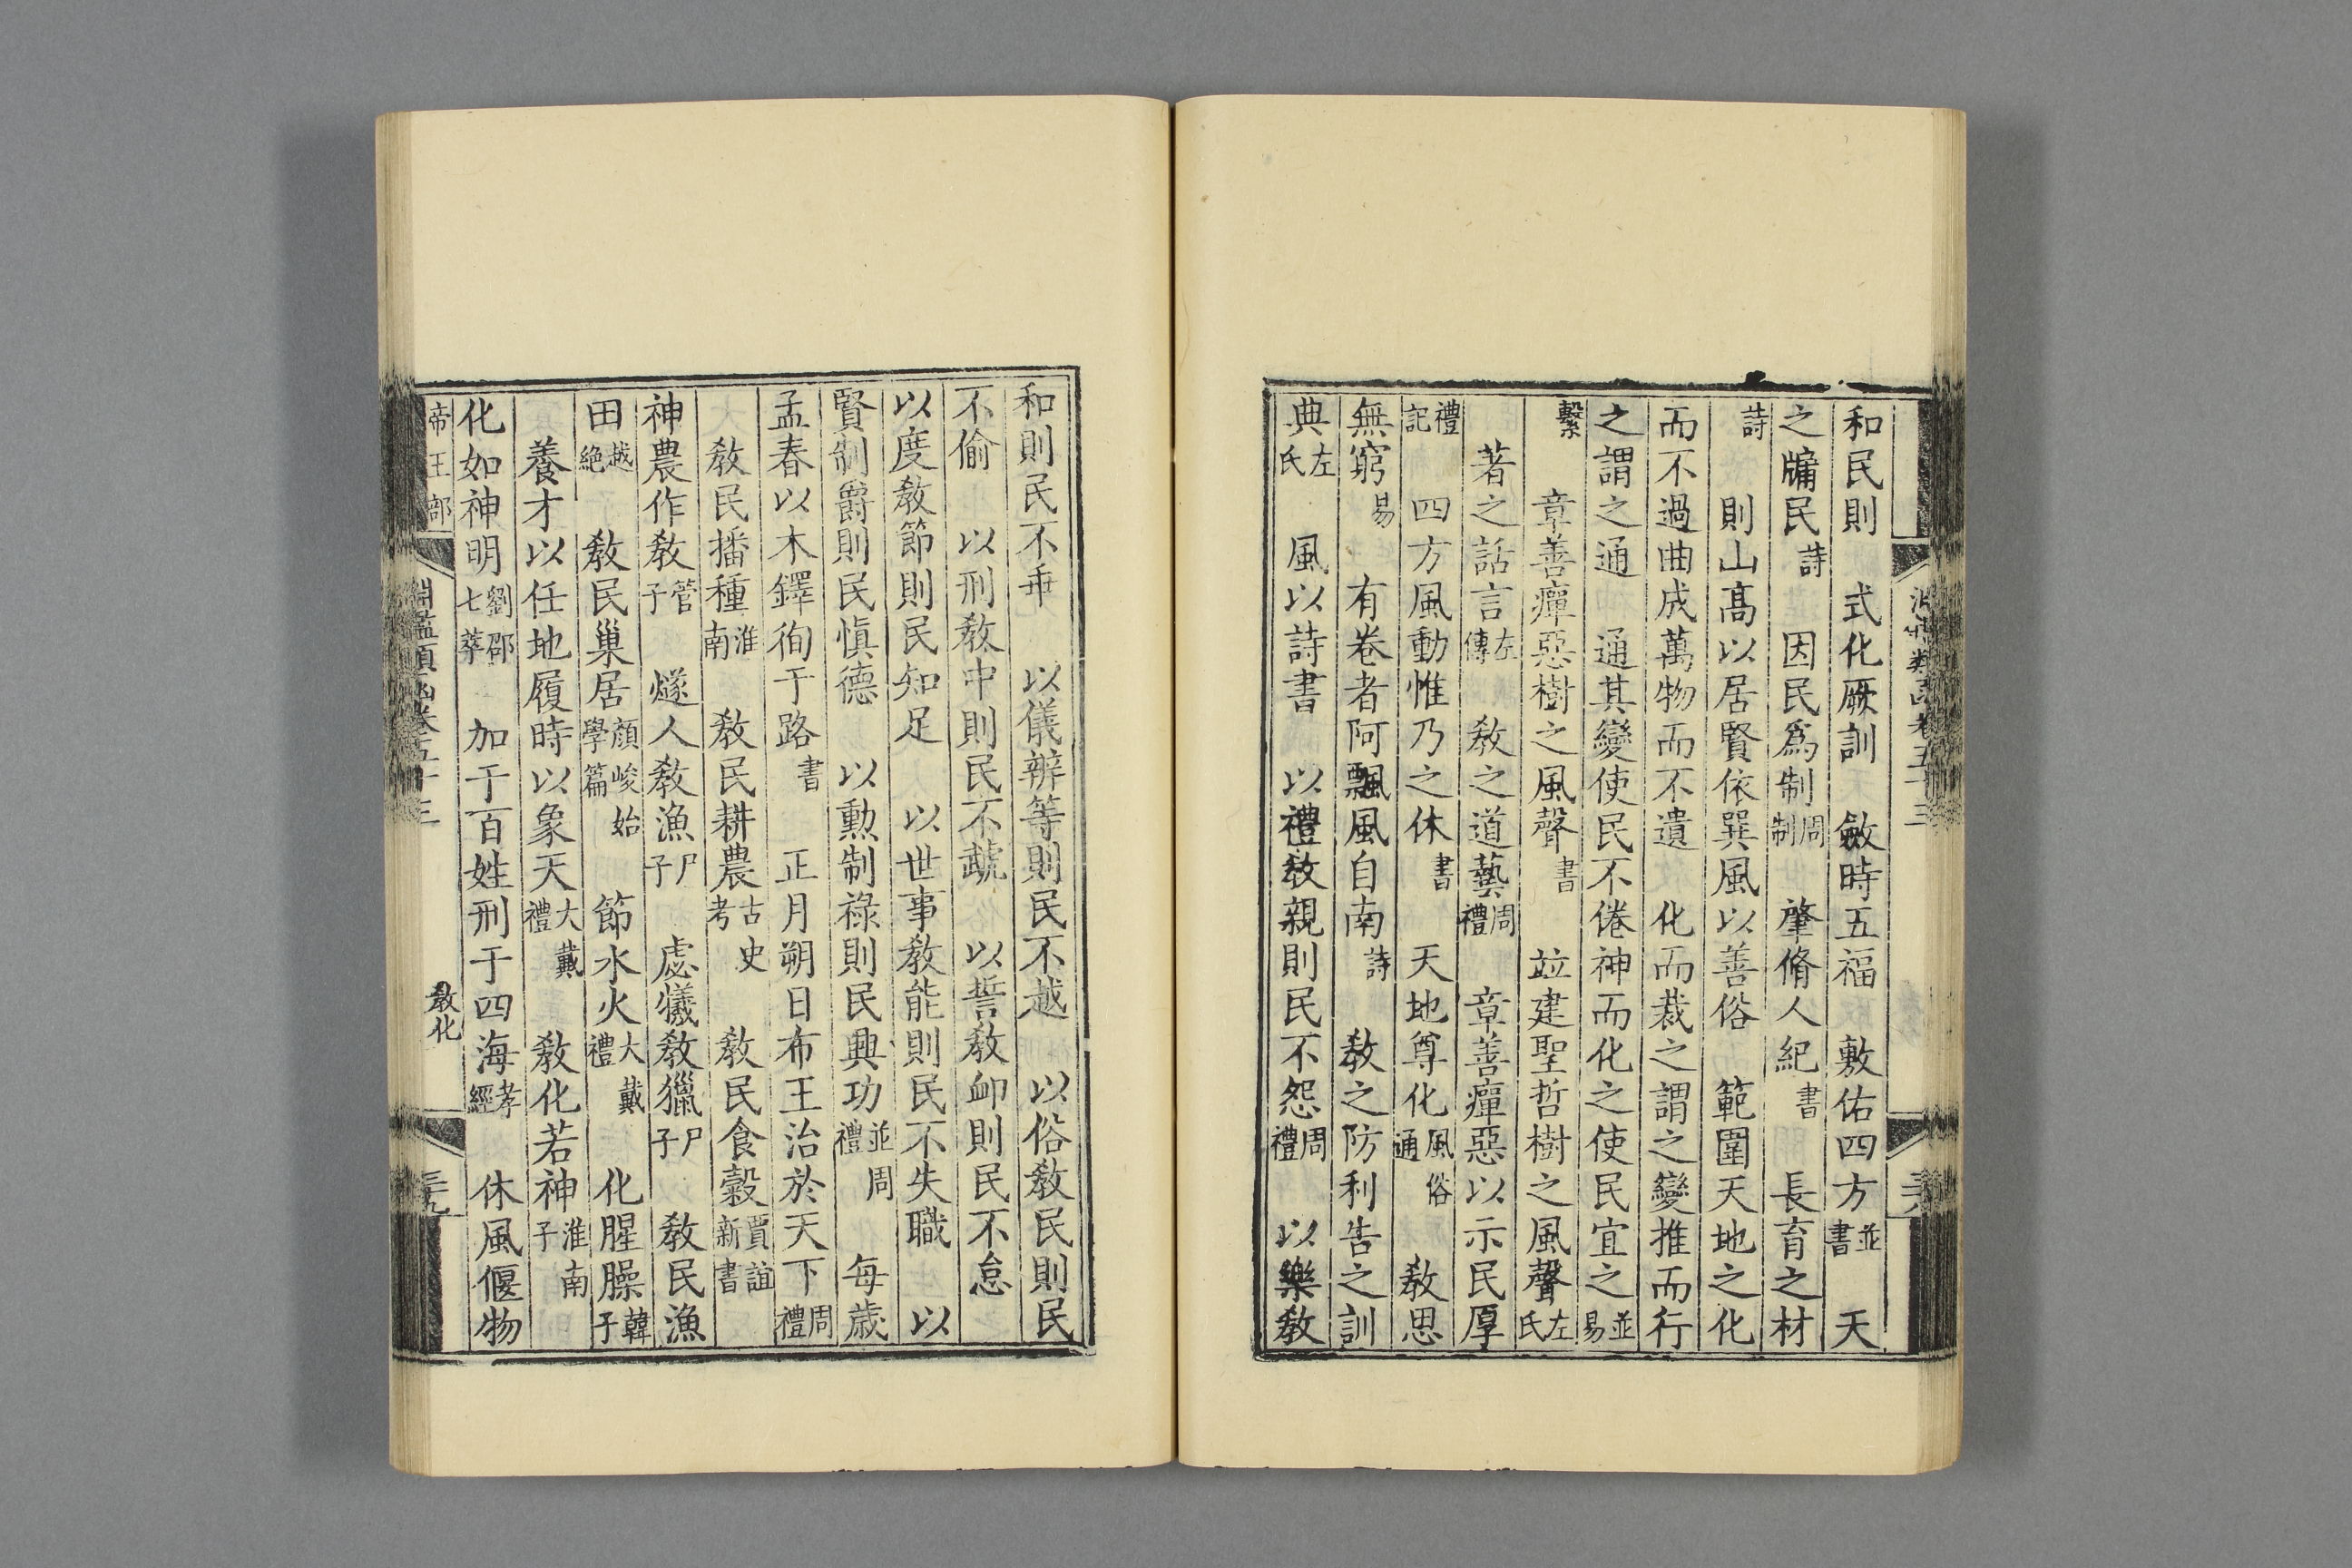 和民則 式化厥訓 斂時五福 敷佑四方並書 天
之牖民詩 因民爲制周制 肇脩人紀書 長育之材
詩 則山高以居賢依巽風以善俗 範圍天地之化
而不過曲成萬物而不遺 化而裁之謂之變推而行
之謂之通 通其變使民不倦神而化之使民宜之並易
繫 章善癉惡樹之風聲書 竝建聖哲樹之風聲左氏
著之話言左傳 敎之道藝周禮 章善癉惡以示民厚
禮記 四方風動惟乃之休書 天地尊化風俗通 敎思
無窮易 有卷者阿飄風自南詩 敎之防利告之訓
典左氏 風以詩書 以禮敎親則民不怨周禮 以樂敎
和則民不乖 以儀辨等則民不越 以俗敎民則民
不偷 以刑敎中則民不虣 以誓敎卹則民不怠
以度敎節則民知足 以世事敎能則民不失職 以
賢制爵則民愼德 以勲制祿則民興功並周禮 每歲
孟春以木鐸徇于路書 正月朔日布王治於天下周禮
敎民播種淮南 敎民耕農古史考 敎民食穀賈誼新書
神農作敎管子 燧人敎漁尸子 虙犧敎獵尸子 敎民漁
田越絕 敎民巢居顏峻始學篇 節水火大戴禮 化腥臊韓子
養才以任地履時以象天大戴禮 敎化若神淮南子
化如神明劉邵七華 加于百姓刑于四海孝經 休風偃物
帝王部 淵鑑類函卷五十三 敎化